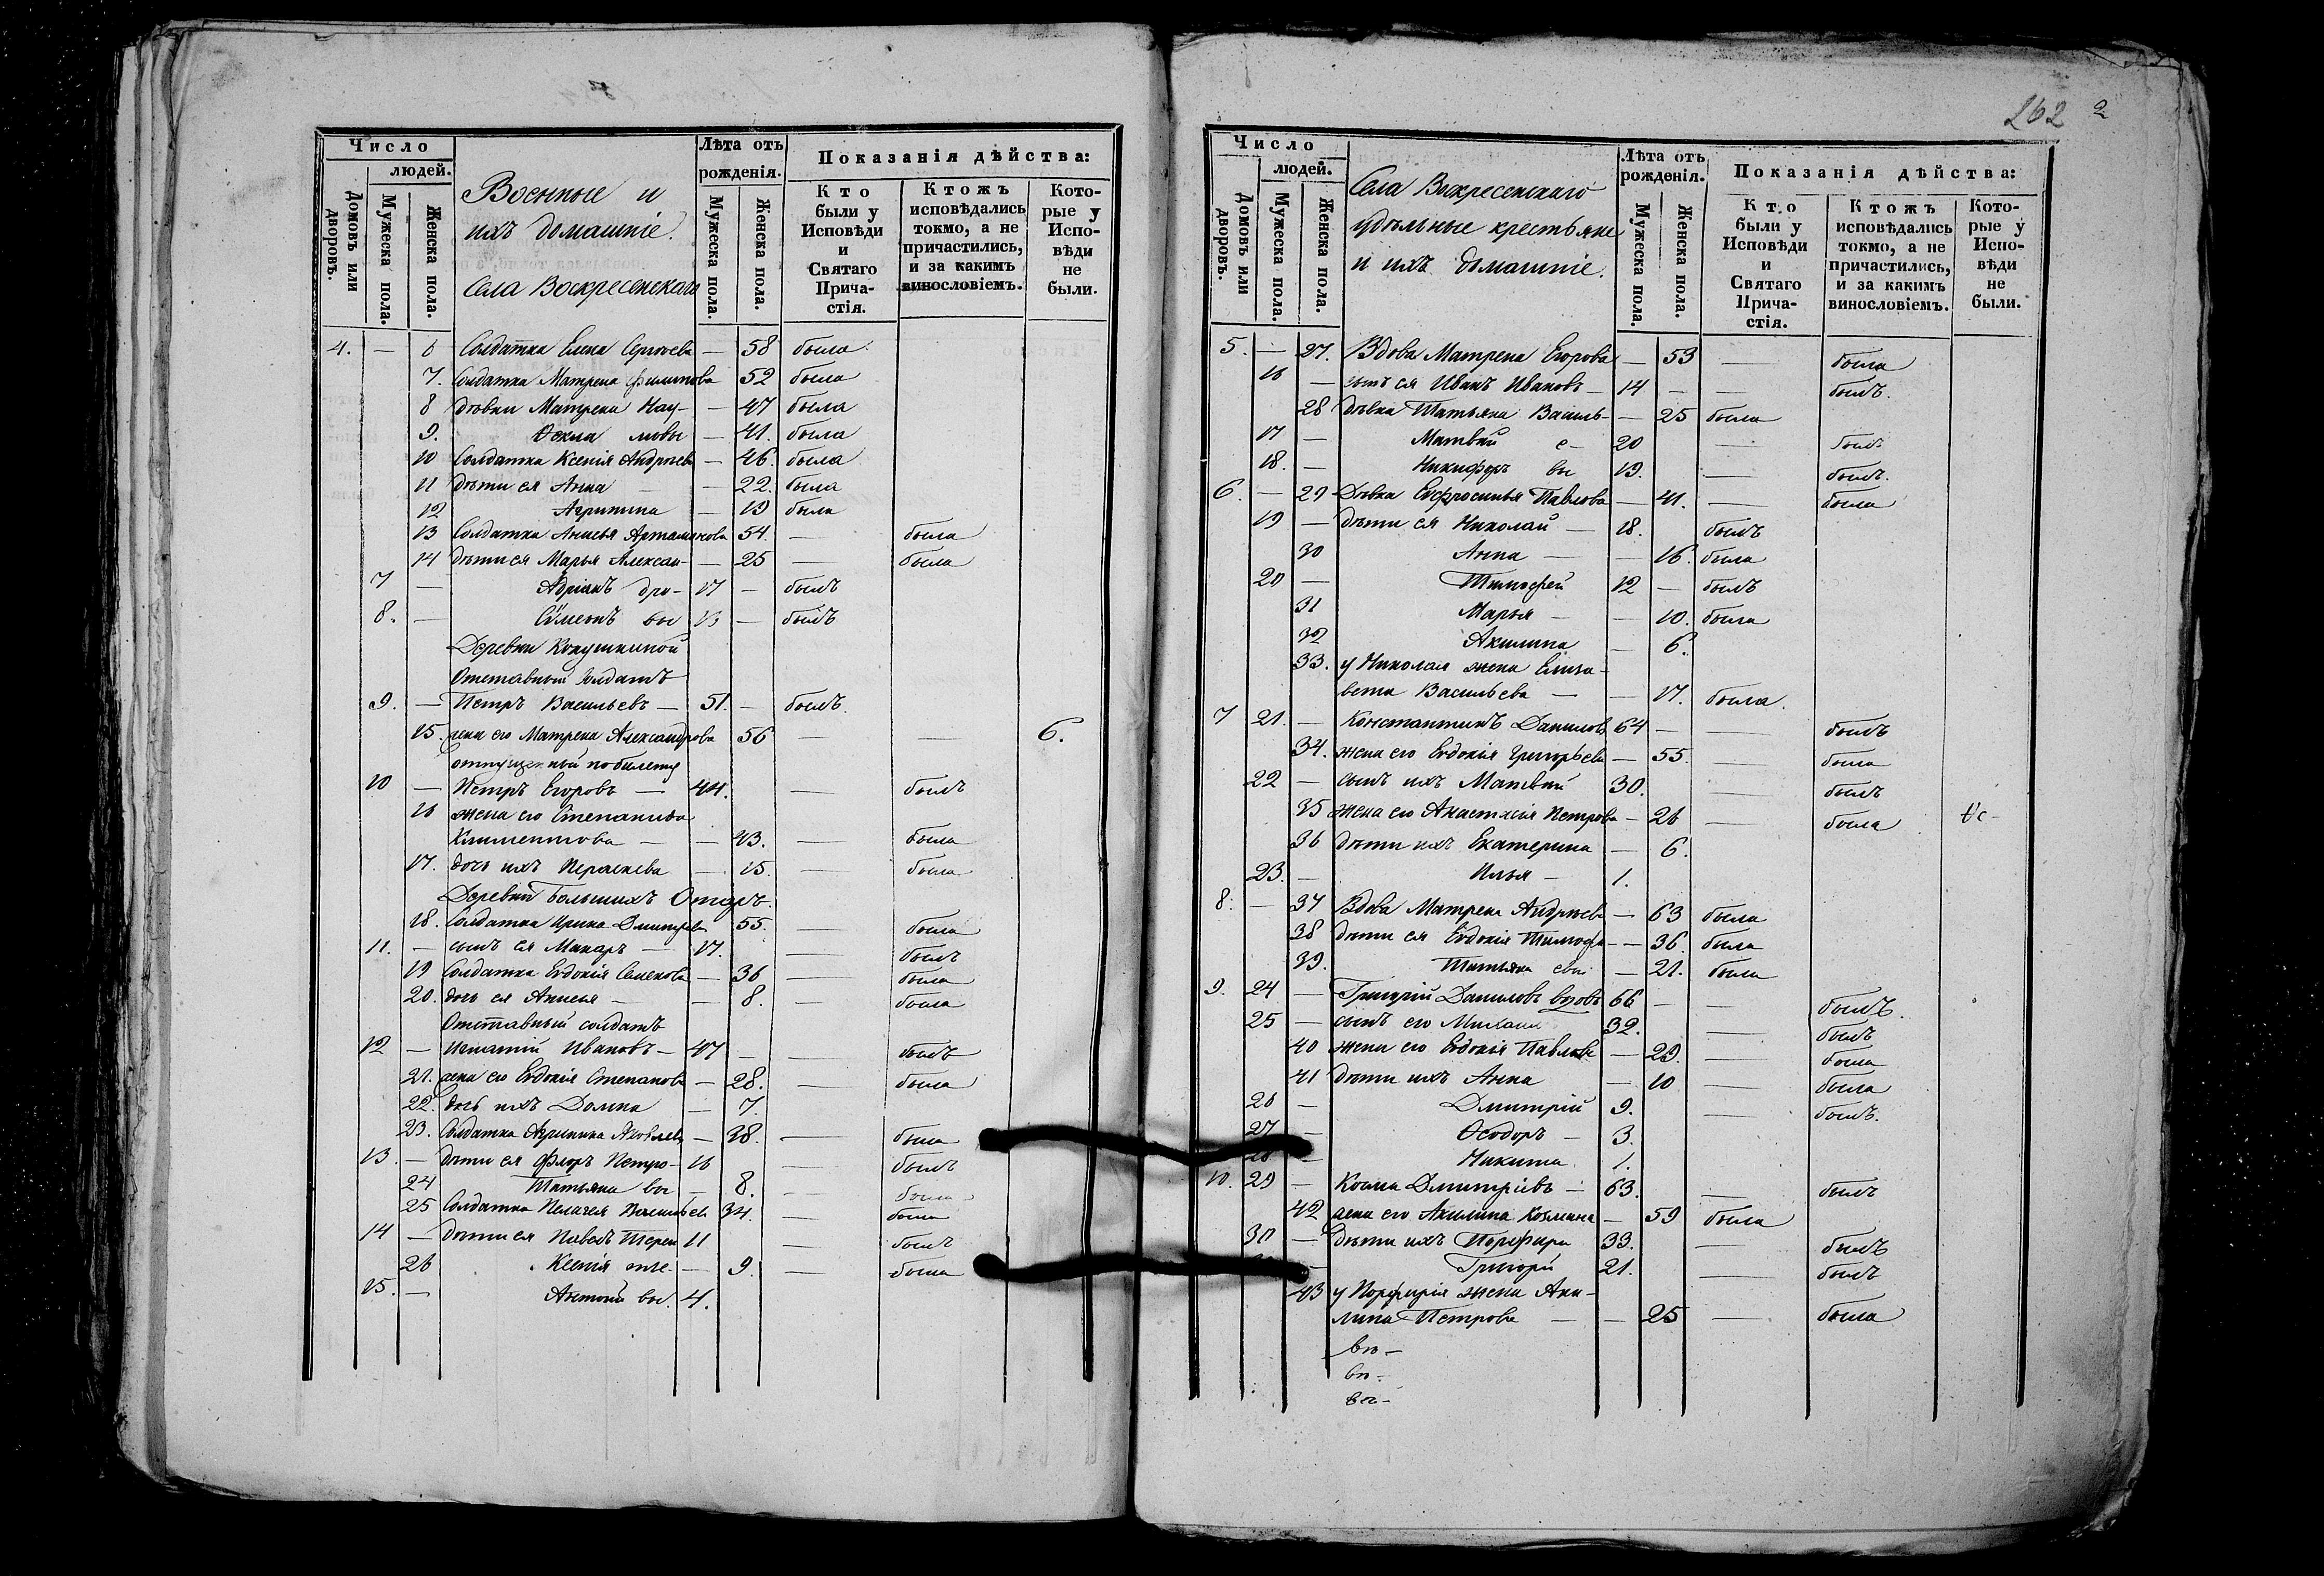 262 2
Число
людей.
Домовъ или дворовъ.
Мужеска пола.
Женска пола.
Военные и
ихъ домашніе.
Села Воскресенскаго
Лѣта отъ рожденія.
Мужеска пола.
Женска пола.
Показанія дѣйства:
Кто были у Исповѣди и Святаго Причастія.
Ктожъ исповѣдались токмо, а не причастились, и за какимъ винословіемъ.
Которые у Исповѣди не были.
4. — 6 Солдатка Елена Сергѣева — 58 была
7. Солдатка Матрена Филипова 52 была
8 дѣвки Матрена Нау- — 47 была
9. Ѳекла мовы — 41. была
10 Солдатка Ксенія Андреева — 46. была
11 дѣти ея Анна — — 22. была
12 Агрипина — 19 была
13 Солдатка Анисья Артамонова 54. — была
14 дѣти ея Марья Алексан- — 25 — была
7 — Адріанъ дро- 17 — былъ
8. — Сѵмеонъ вы 13 — былъ
Деревни Кокушкиной
Отставный Солдатъ
9. — Петръ Васильевъ — 51. — былъ.
15. жена его Матрена Александрова 56 — — 6.
отпущенный по билету
10 — Петръ Егоровъ — 44. — былъ
16 жена его Степанида
Климентова — — 43. — была
17. дочь ихъ Пераскева — 15. — была
Деревни Большихъ Отаръ.
18. Солдатка Ирина Дмитрева 55. — была
11. — сынъ ея Макаръ — 17. — былъ
19 Солдатка Евдокія Семенова — 36 — была
20. дочь ея Анисья — — 8. — была
Отставный солдатъ
12 — Игнатій Ивановъ — 47 — — былъ
21. жена его Евдокія Степанова — 28. — была
22. дочь ихъ Домна — 7.
23. Солдатка Агрипина Яковлева — 38. — была
13. — дѣти ея Флоръ Петро- 16 — былъ
24 Татьяна вы — 8. — была
25 Солдатка Пелагея Васильева 34. — была
14 — дѣти ея Павелъ Терен 11 — былъ
26 Ксенія тье- — 9. — была
15. — Антоній вы. 4.
Число
людей.
Домовъ или дворовъ.
Мужеска пола.
Женска пола.
Села Воскресенскаго
удѣльные крестьяне
и ихъ домашніе.
Лѣта отъ рожденія.
Мужеска пола.
Женска пола.
Показанія дѣйства:
Кто были у Исповѣди и Святаго Причастія.
Ктожъ исповѣдались токмо, а не причастились, и за какимъ винословіемъ.
Которые у Исповѣди не были.
5. — 27. Вдова Матрена Егорова — 53 — была
16 — сынъ ея Иванъ Ивановъ — 14 — — былъ.
28 дѣвка Татьяна Василь- — 25 была
17 — Матвѣй е- 20 — былъ
18. — Никифоръ вы 19. — былъ.
6. — 29 Дѣвка Евфросинья Павлова — 41. — была
19 — дѣти ея Николай — 18. былъ
30 Анна — — 16. была
20 — Тимофей 12 — былъ
31 Марья — — 10. была
32 Акилина — 6.
33. у Николая жена Елиза-
вета Васильева — — 17. была.
7 21. — Константинъ Даниловъ 64 — — былъ
34. жена его Евдокія Григорьева — 55. — была
22 — сынъ ихъ Матвѣй 30. — былъ
35 жена его Анастасія Петрова — 26 — была
36 дѣти ихъ Екатерина — 6.
23. — Илья — 1.
8. — 37 Вдова Матрена Андреева — 63 была
38 дѣти ея Евдокія Тимофе- — 36. была
39. Татьяна евы — 21. была
9. 24 — Григорій Даниловъ вдовъ 66 — — былъ.
25 — сынъ его Михаилъ 32. — былъ
40 жена его Евдокія Павлова — 29. — была
41 дѣти ихъ Анна — 10 — была
26 — Дмитрій 9. — былъ.
27 — Ѳеодоръ — 3.
28 — Никита 1.
10. 29 — Козма Дмитріевъ — 63. — былъ
42 жена его Акилина Козмина — 59 была
30 — дѣти ихъ Порфирій 33. — былъ
— Григорій 21. — былъ
43 у Порфирія жена Аки-
лина Петрова — — 25 — была